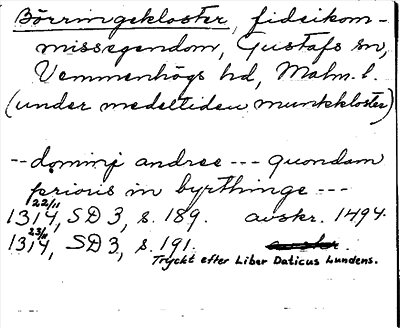 Börringekloster, fideikom-
missegendom, Gustafs sn,
Vemmenhögs hd, Malm. l.
(under medeltiden munkkloster)
-- dominj andree --- quondam
prioris in byrthinge ---
22/11
1314, SD 3, s. 189. avskr. 1494.
23/11
1314, SD 3, s. 191. avskr.
Tryckt efter Liber Daticus Lundens.